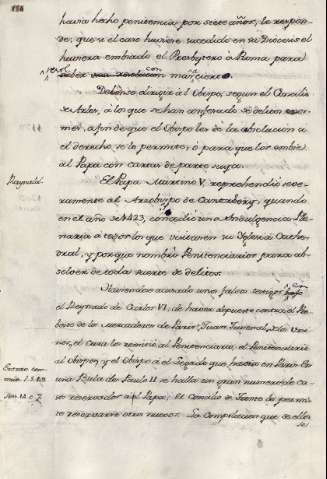 havia hecho penitencia por siete años, le respon-
de, que si el caso huviese sucedido en su Diocesis el
huviera embiado el Presbytero à Roma para
Debense dirigir al Obispo, segun el Concilio
de Arles, à los que se han confesado de delitos enor-
mes, afin de que el Obispo les dé la absolucion si
el derecho se lo permite; ò para que los embie
al Papa con cartas de parte suya.
Raynald.
El Papa Martino V, reprehendió seve-
ramente al Arzobispo de Cantorbery, quando
en el año de 1423, concedió una Indulgencia Ple-
naria à todos los que visitasen su Yglesia Cathe-
dral, y porque nombró Penitenciarios para ab-
solver de toda suerte de delitos.
Haviendose acusado unos falsos testigos
el Reynado de Carlos VI, de haver depuesto contra el Pre-
boste de los Mercaderes de Paris, Juan Juvenal de los Ursi-
nos, el Cura los remitió al Penitenciario, el Penitenciario
al Obispo, y el Obispo al Legado que havia en Paris. En
una Bula de Paulo II se halla un gran numero de ca-
sos reservados al Papa; el Concilio de Trento le permi-
te reservarse otros nuevos. La Compilacion que de ellos
se